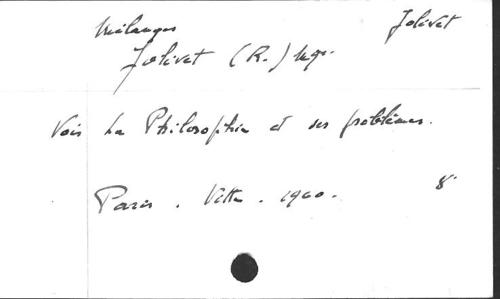 Mélanges Jolivet
Jolivet (R.) Mgr.
Voir La Philosophie et ses problèmes.
Paris. Vitte. 1960. 8°